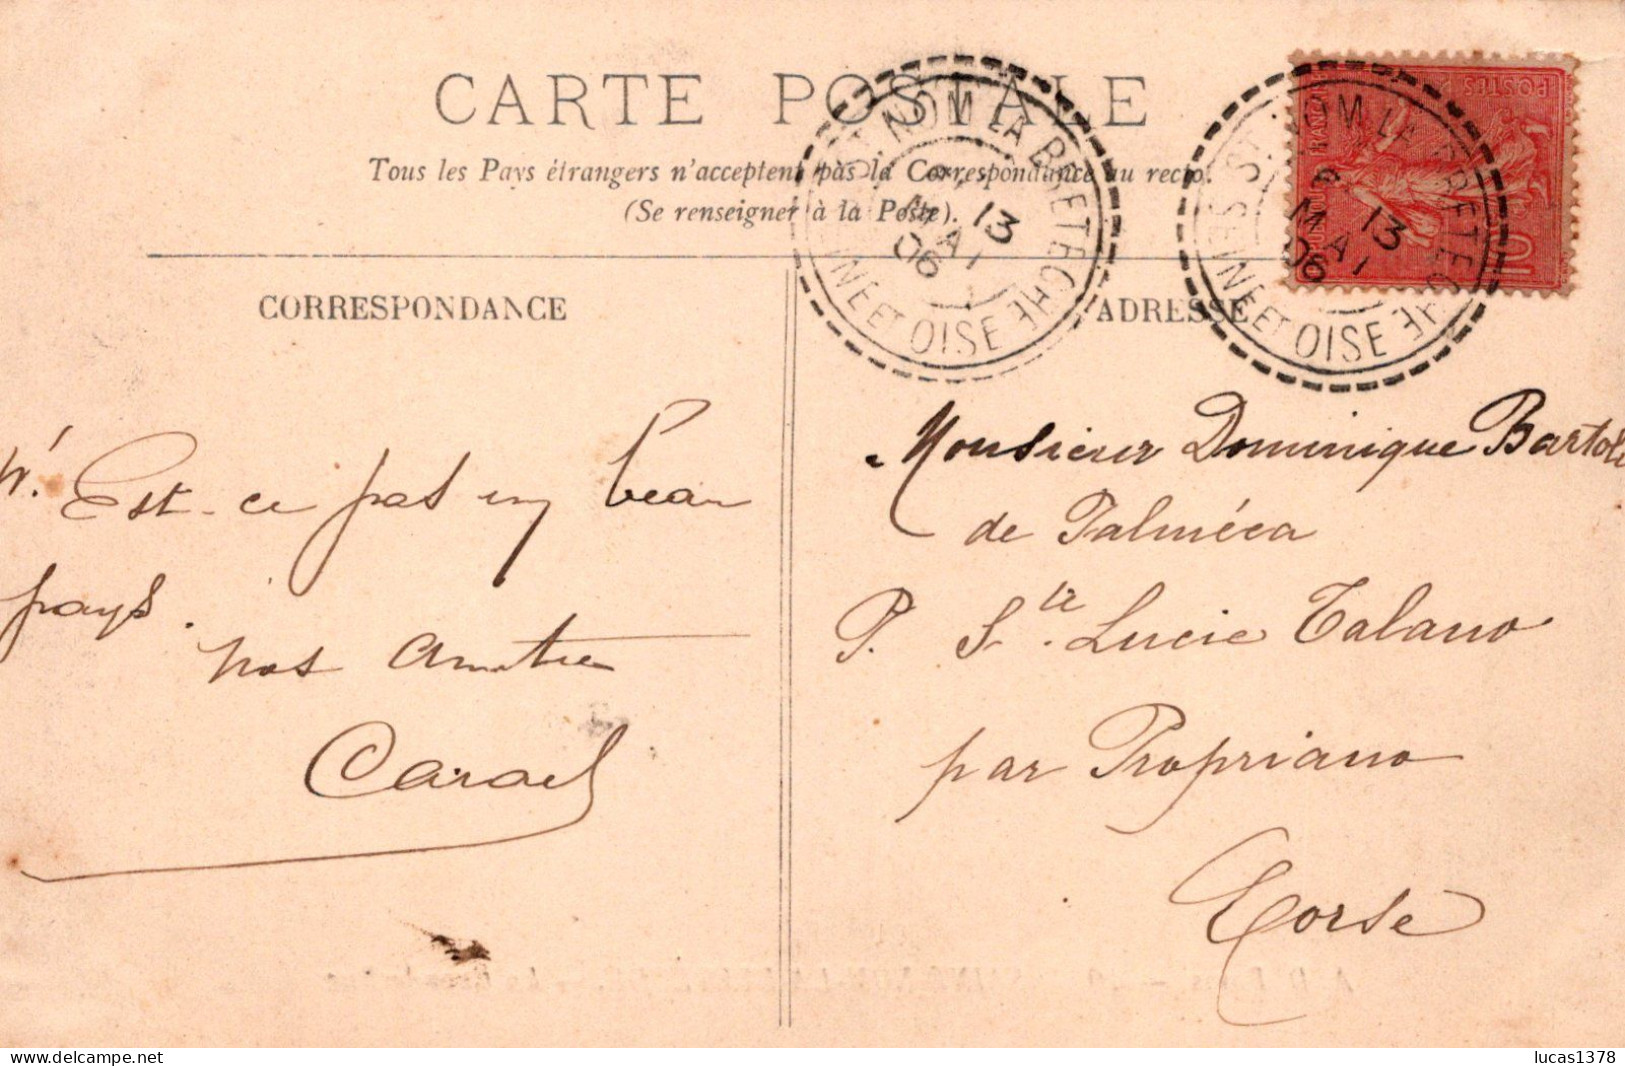 CARTE POSTALE
Tous les Pays étrangers n'acceptent pas la Correspondance au recto.
(Se renseigner à la Poste).
CORRESPONDANCE
ADRESSE
ST NOM LA BRETECHE
8
13
MAI
06
SEINE ET OISE
ST NOM LA BRETECHE
8
13
MAI
06
SEINE ET OISE
POSTES
REPUBLIQUE FRANÇAISE
10
Est-ce pas un beau
pays.
nos
Monsieur Dominique Bartoli
de Palméca
P. Ste. Lucie Talano
par Propriano
Corse
lucas1378